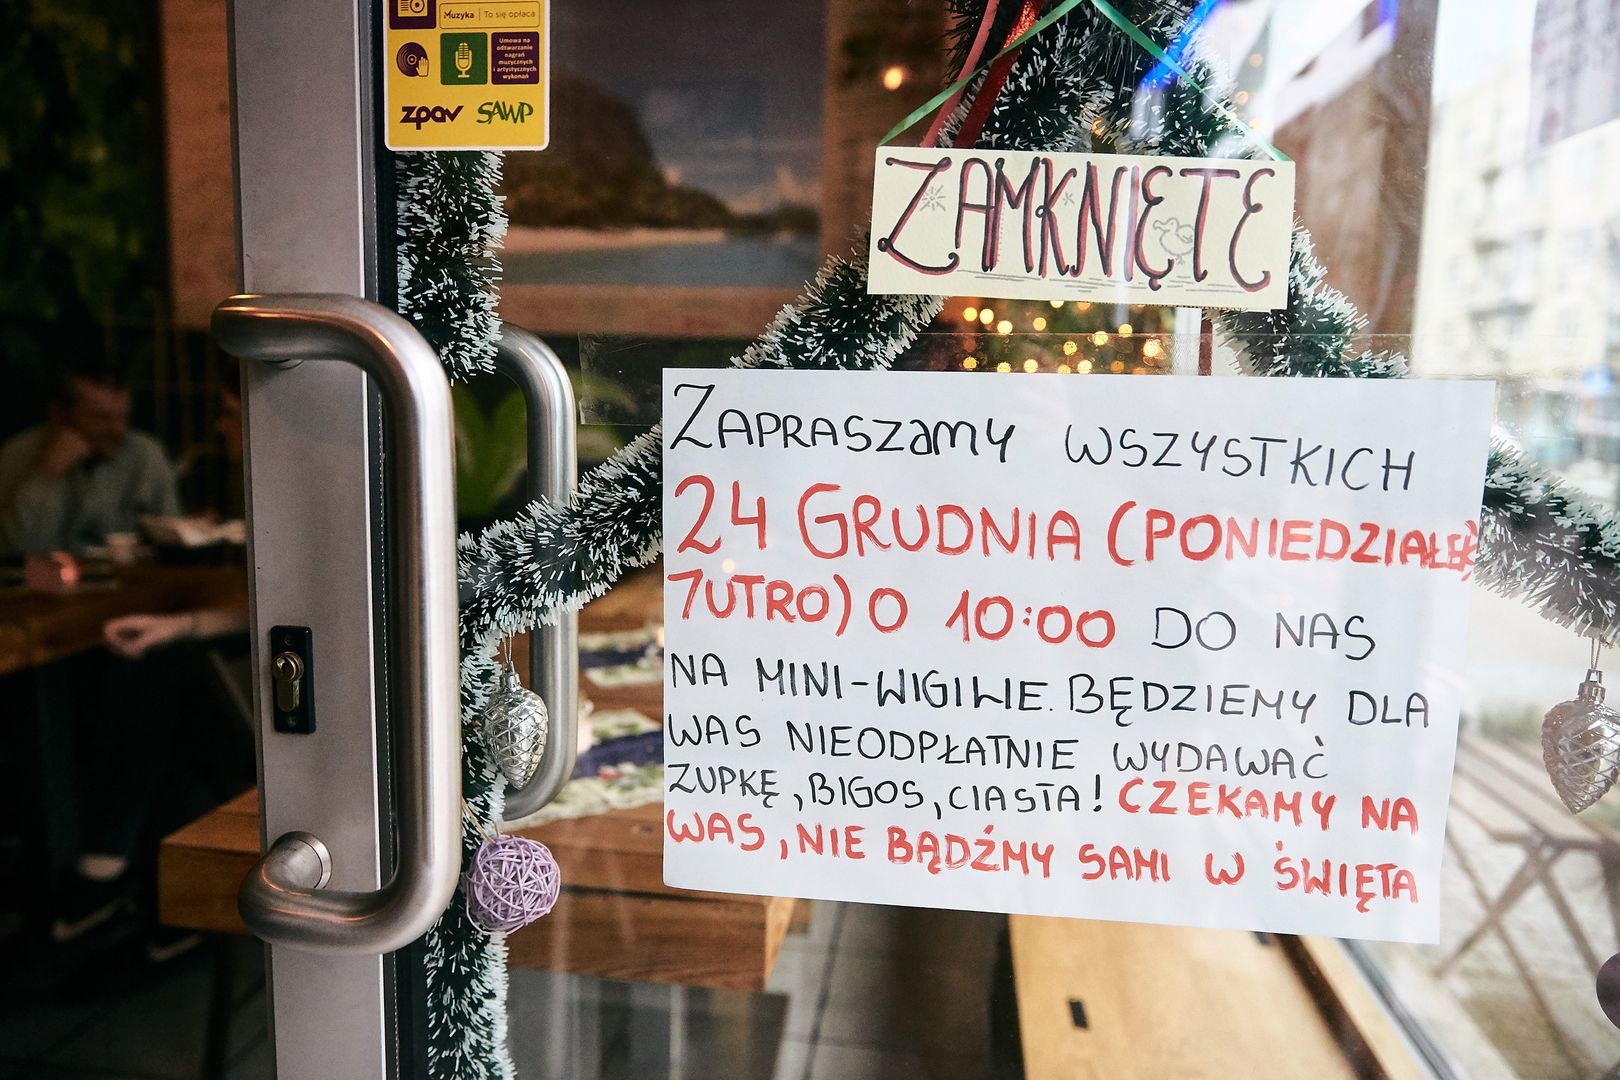 Muzyka | To się opłaca
Umowa na
odtwarzanie
nagrań
muzycznych
i artystycznych
wykonań
zpav SAWP
ZAMKNIĘTE
ZAPRASZAMY WSZYSTKICH
24 GRUDNIA (PONIEDZIAŁEK,
JUTRO) O 10:00 DO NAS
NA MINI-WIGILIE. BĘDZIEMY DLA
WAS NIEODPŁATNIE WYDAWAĆ
ZUPKĘ, BIGOS, CIASTA! CZEKAMY NA
WAS, NIE BĄDŹMY SAMI W ŚWIĘTA